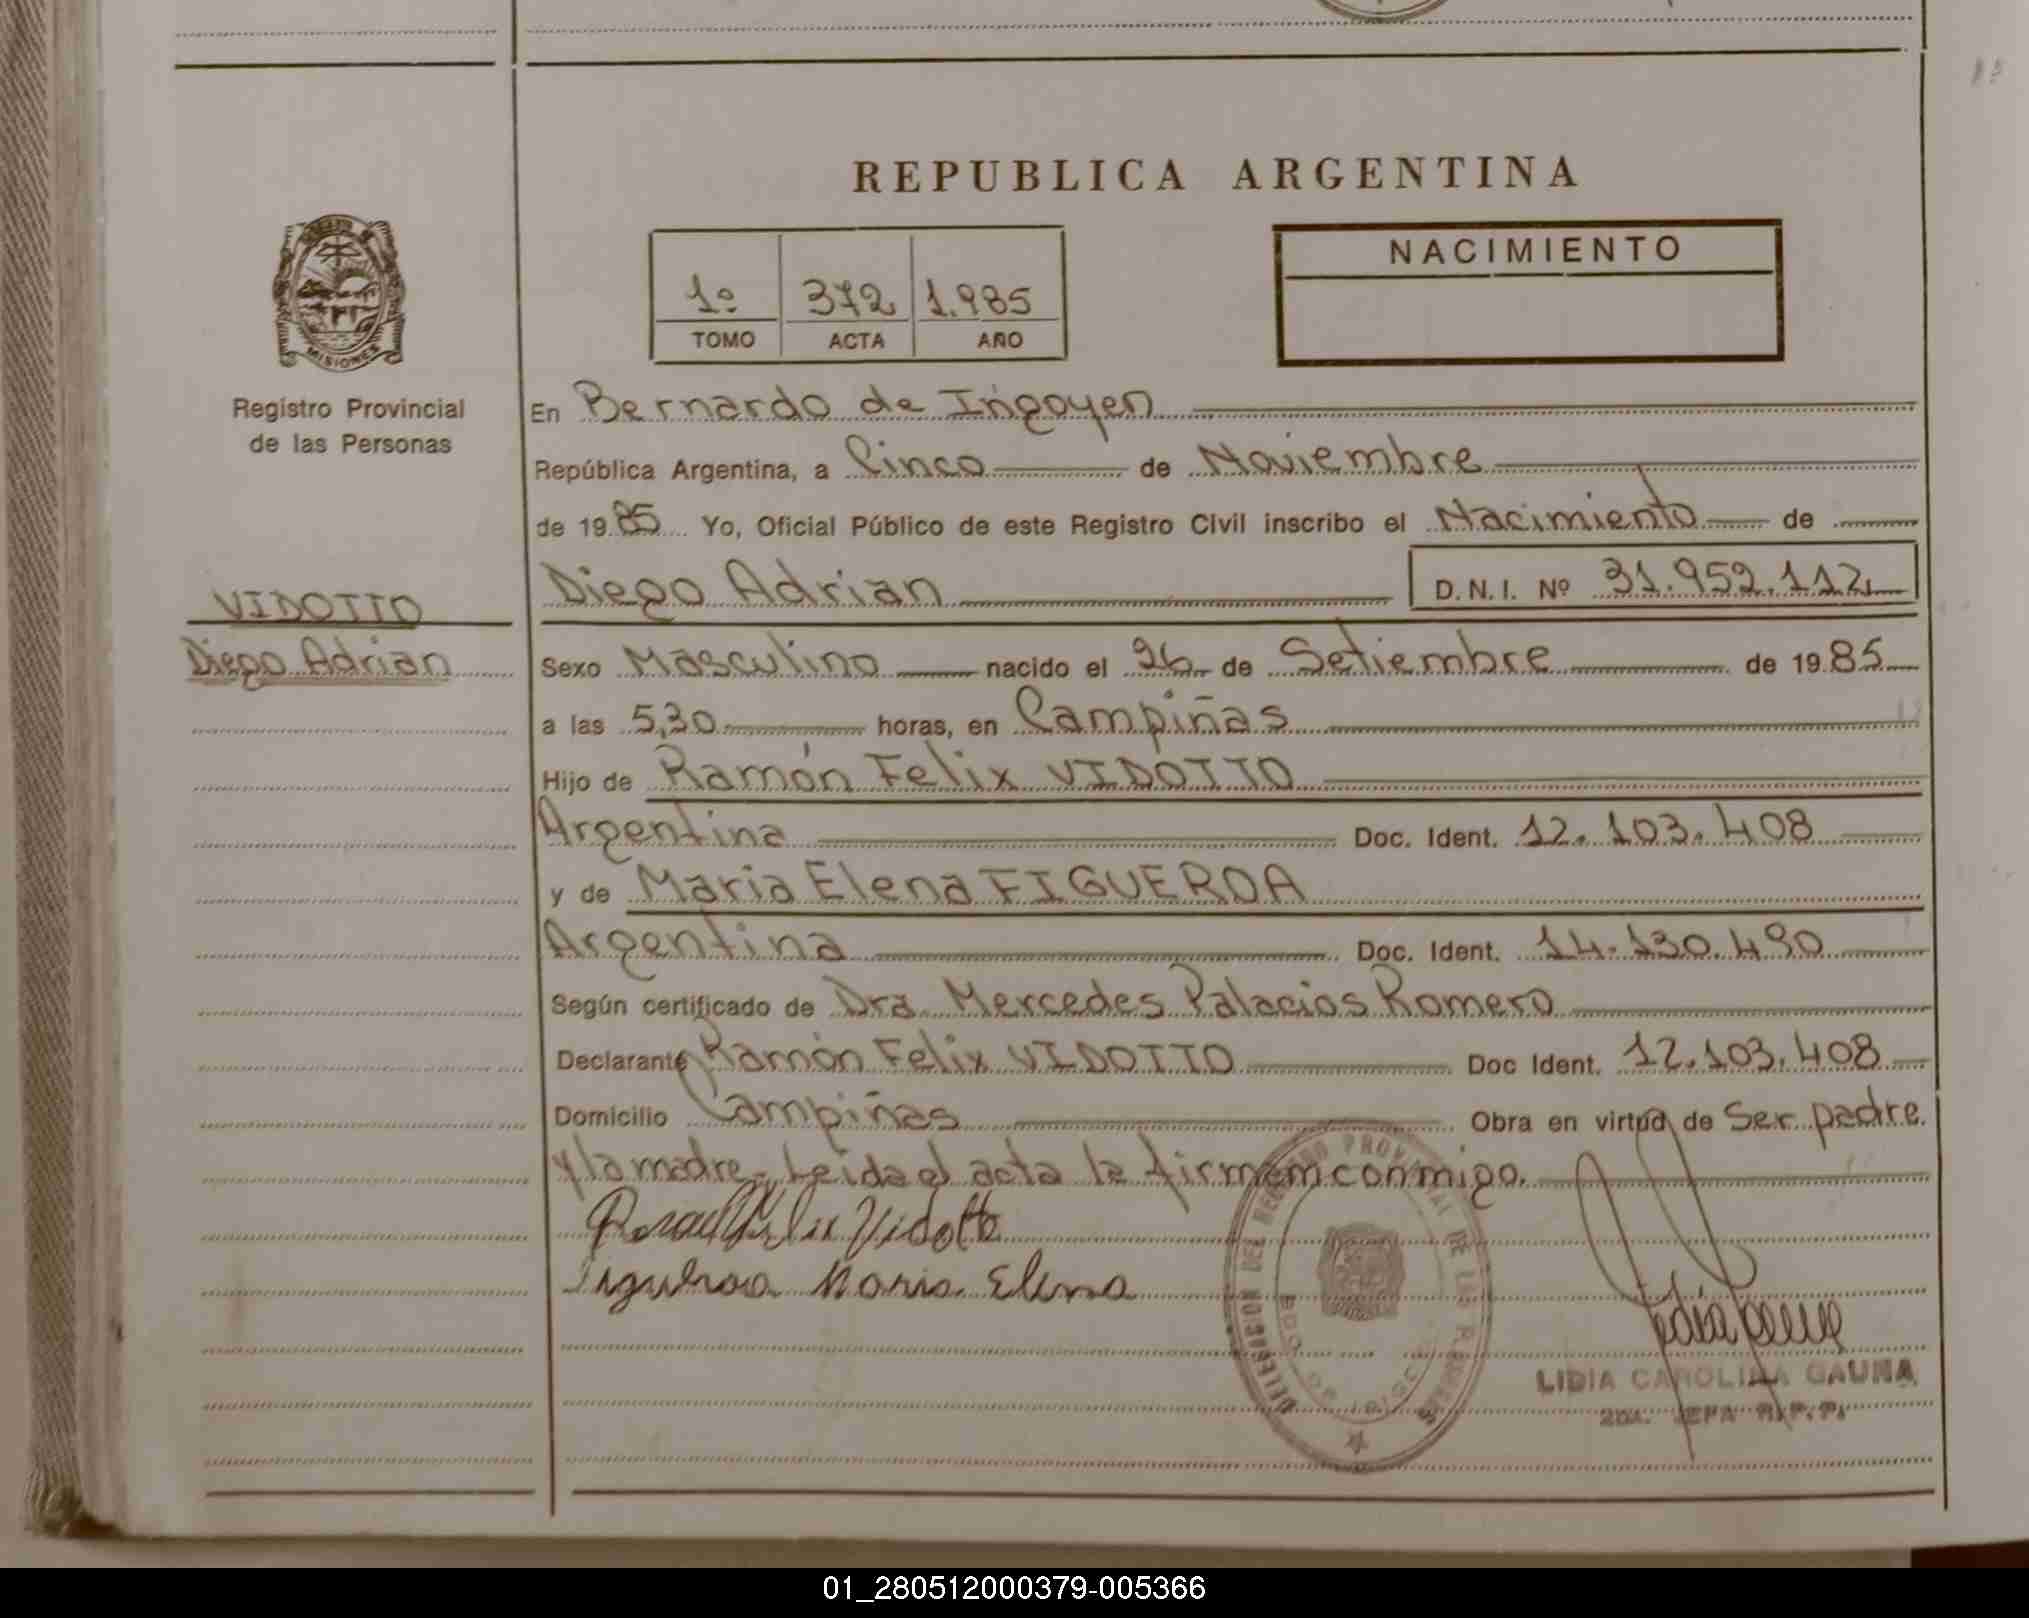 REPUBLICA ARGENTINA
MISIONES
Registro Provincial
de las Personas
1º 372 1.985
TOMO ACTA AÑO
NACIMIENTO
En Bernardo de Irigoyen
República Argentina, a Cinco de Noviembre
de 1985 Yo, Oficial Público de este Registro Civil inscribo el Nacimiento de
VIDOTTO
Diego Adrian
Diego Adrian D.N.I. Nº 31.952.112
Sexo Masculino nacido el 26 de Setiembre de 1985
a las 5,30 horas, en Campiñas
Hijo de Ramón Felix VIDOTTO
Argentina Doc. Ident. 12.103.408
y de Maria Elena FIGUEROA
Argentina Doc. Ident. 14.130.490
Según certificado de Dra. Mercedes Palacios Romero
Declarante Ramón Felix VIDOTTO Doc Ident. 12.103.408
Domicilio Campiñas Obra en virtud de Ser padre
y la madre.- Leida el acta la firman conmigo.
Ramon Felix Vidotto
Figueroa Maria Elena
DELEGACION DEL REGISTRO PROVINCIAL DE LAS PERSONAS
BDO. DE IRIGOYEN
LIDIA CAROLINA GAUNA
2da. JEFA R.P.P.
01_280512000379-005366